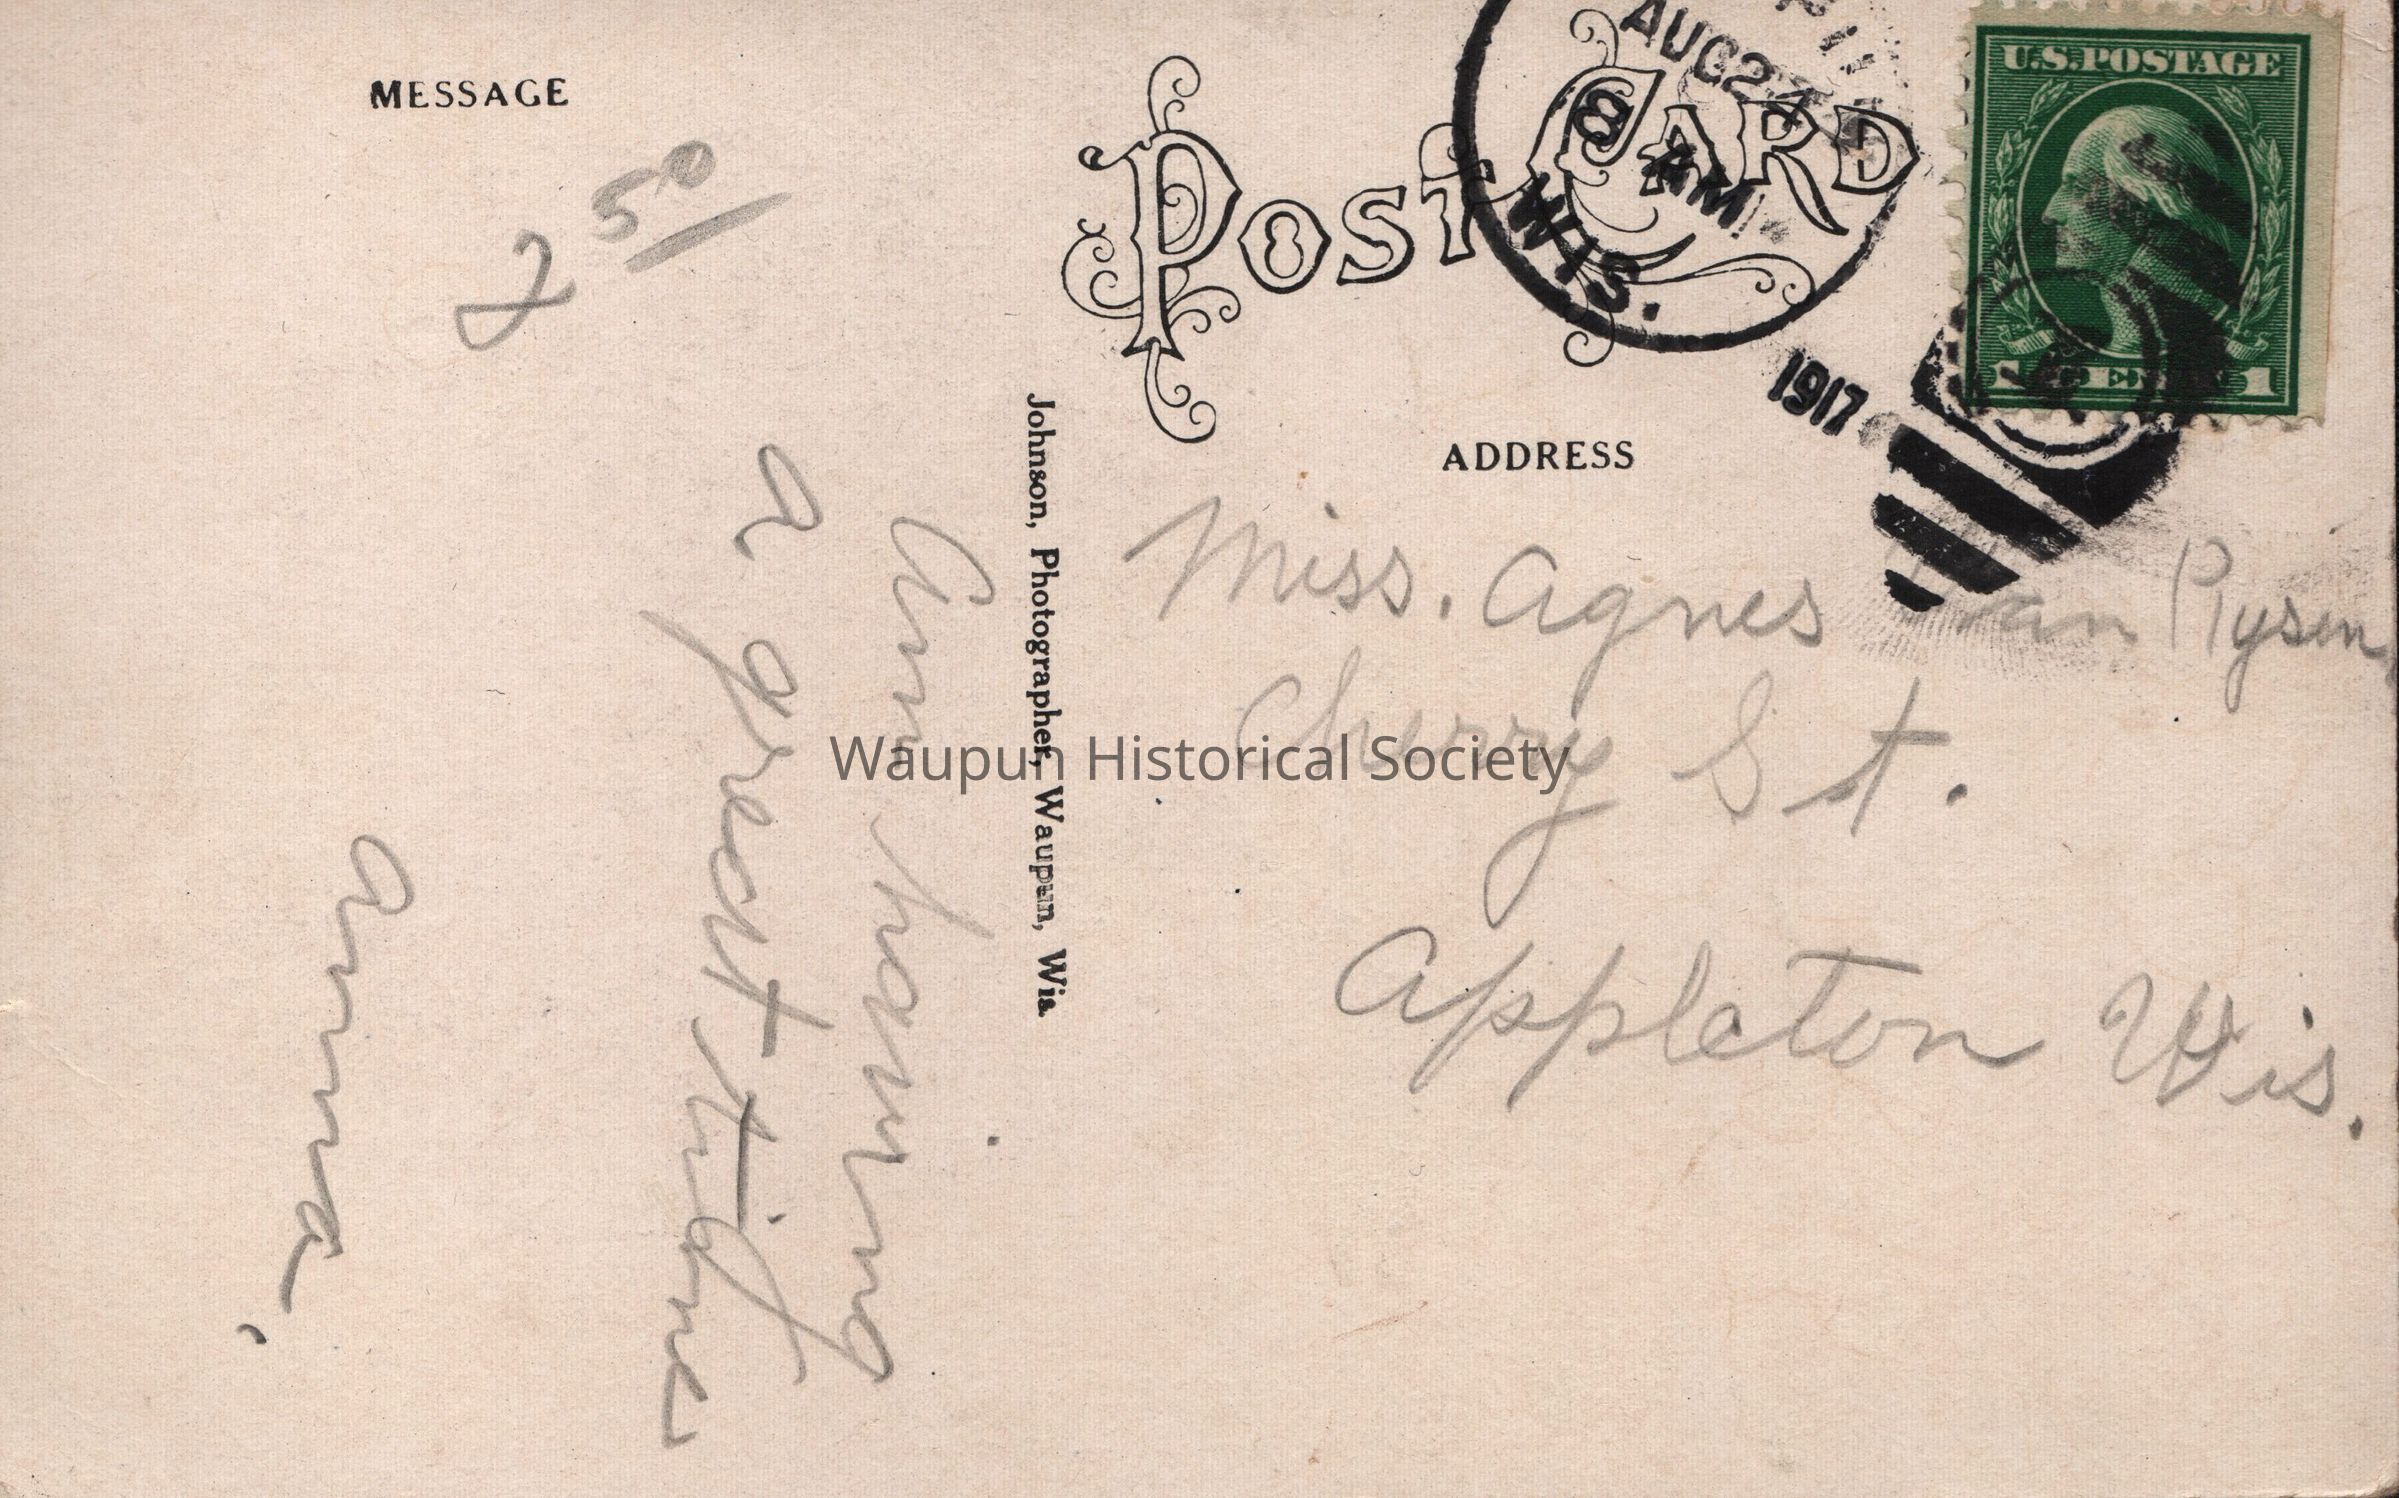 MESSAGE
2 50
Am having
a great time
Anna.
Johnson, Photographer, Waupun, Wis
POST CARD
AUG 27
8 AM
WIS.
1917
U.S. POSTAGE
1 CENT 1
ADDRESS
Miss. Agnes Van
Cherry St.
Appleton Wis.
Waupun Historical Society